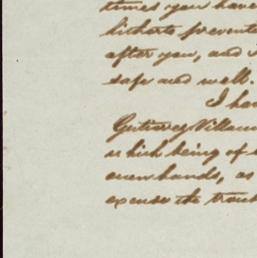 times you have
hitherto prevente
after you, and
safe and well.
I ha
Gutierrez Villanu
which being of
own hands, as
excuse the trou